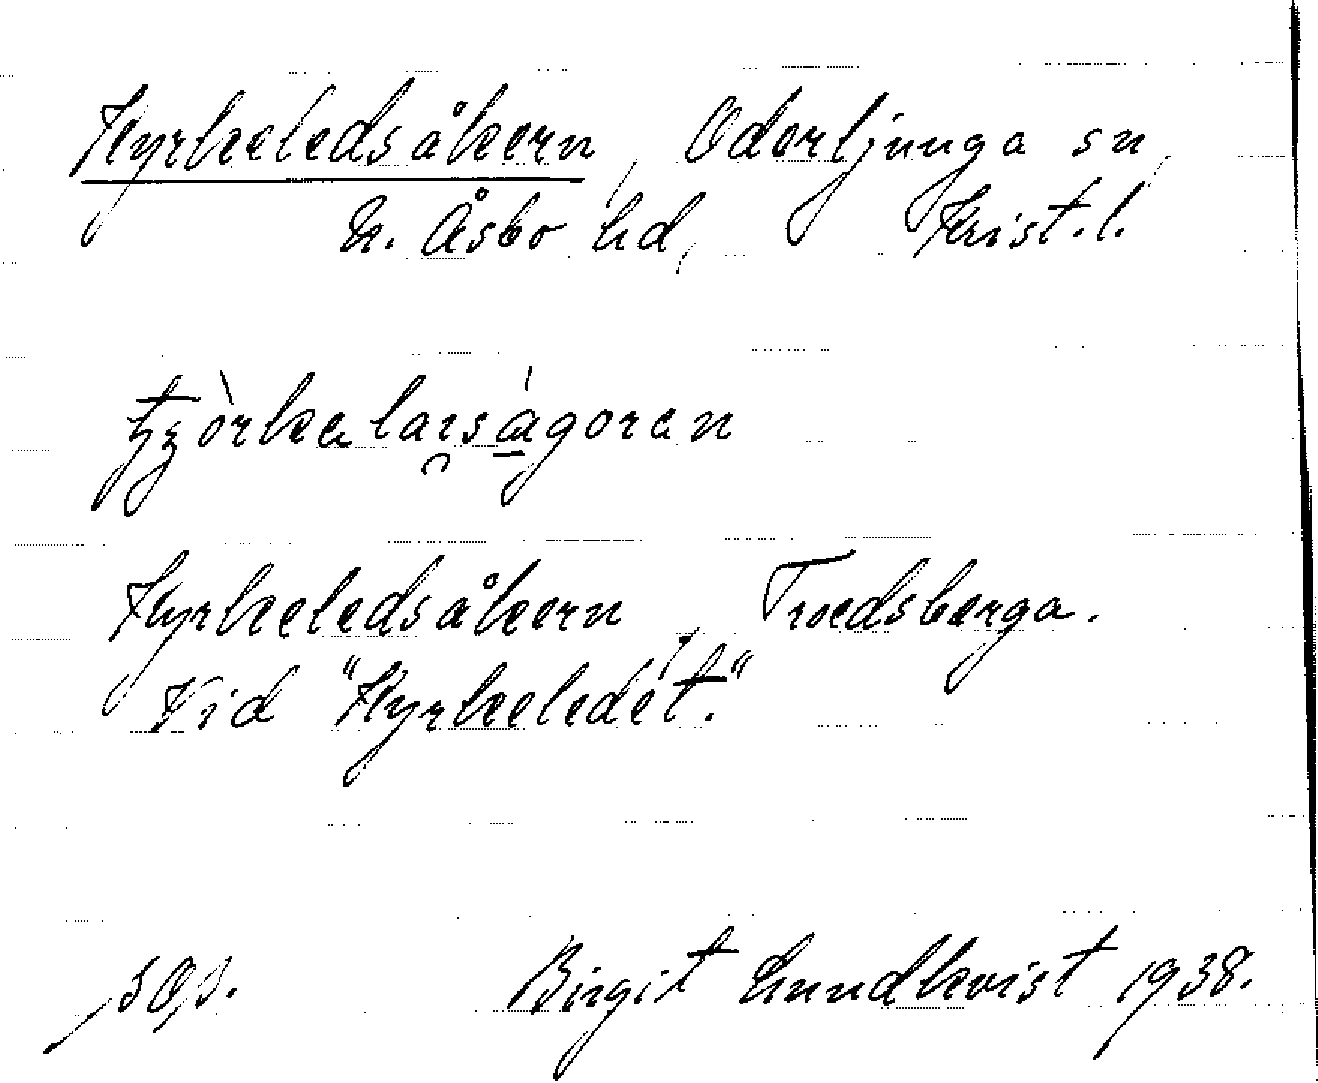 Kyrkeledsåkern, Oderljunga sn,
N. Åsbo hd, Krist. l.
Kyrkeledsåkern, Troedsberga.
Vid "Kyrkeledet."
Birgit Lundkvist 1938.